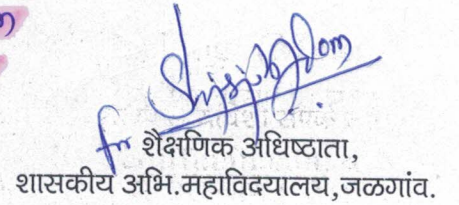 for शैक्षणिक अधिष्ठाता,
शासकीय अभि.महाविदयालय,जळगांव.